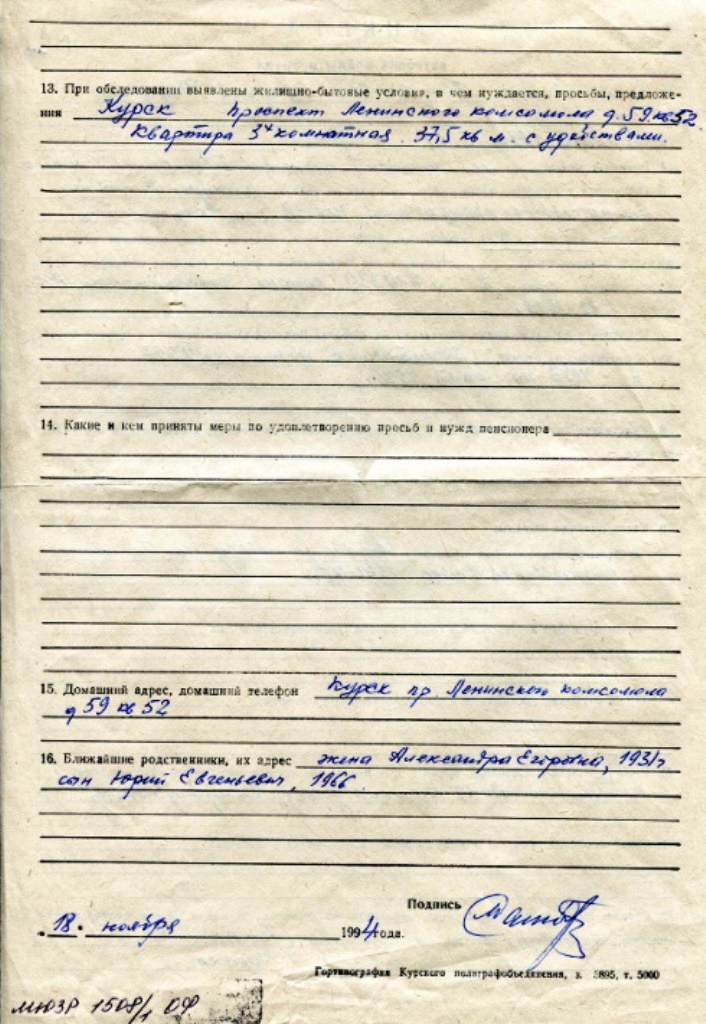 13. При обследовании выявлены жилищно-бытовые условия, в чем нуждается, просьбы, предложе-
ния Курск проспект Ленинского комсомола д. 59. кв 52
Квартира 3х комнатная 37,5 кв м. с удобствами.
14. Какие и кем приняты меры по удовлетворению просьб и нужд пенсионера
15. Домашний адрес, домашний телефон Курск пр. Ленинского комсомола
д 59 кв 52
16. Ближайшие родственники, их адрес жена Александра Егоровна, 1931г
сын Юрий Евгеньевич, 1966
Подпись
„18“ ноября 1994 года.
Гортипография Курского полиграфобъединения, з. 5895, т. 5000
МЮЗР 1508/1 ОФ